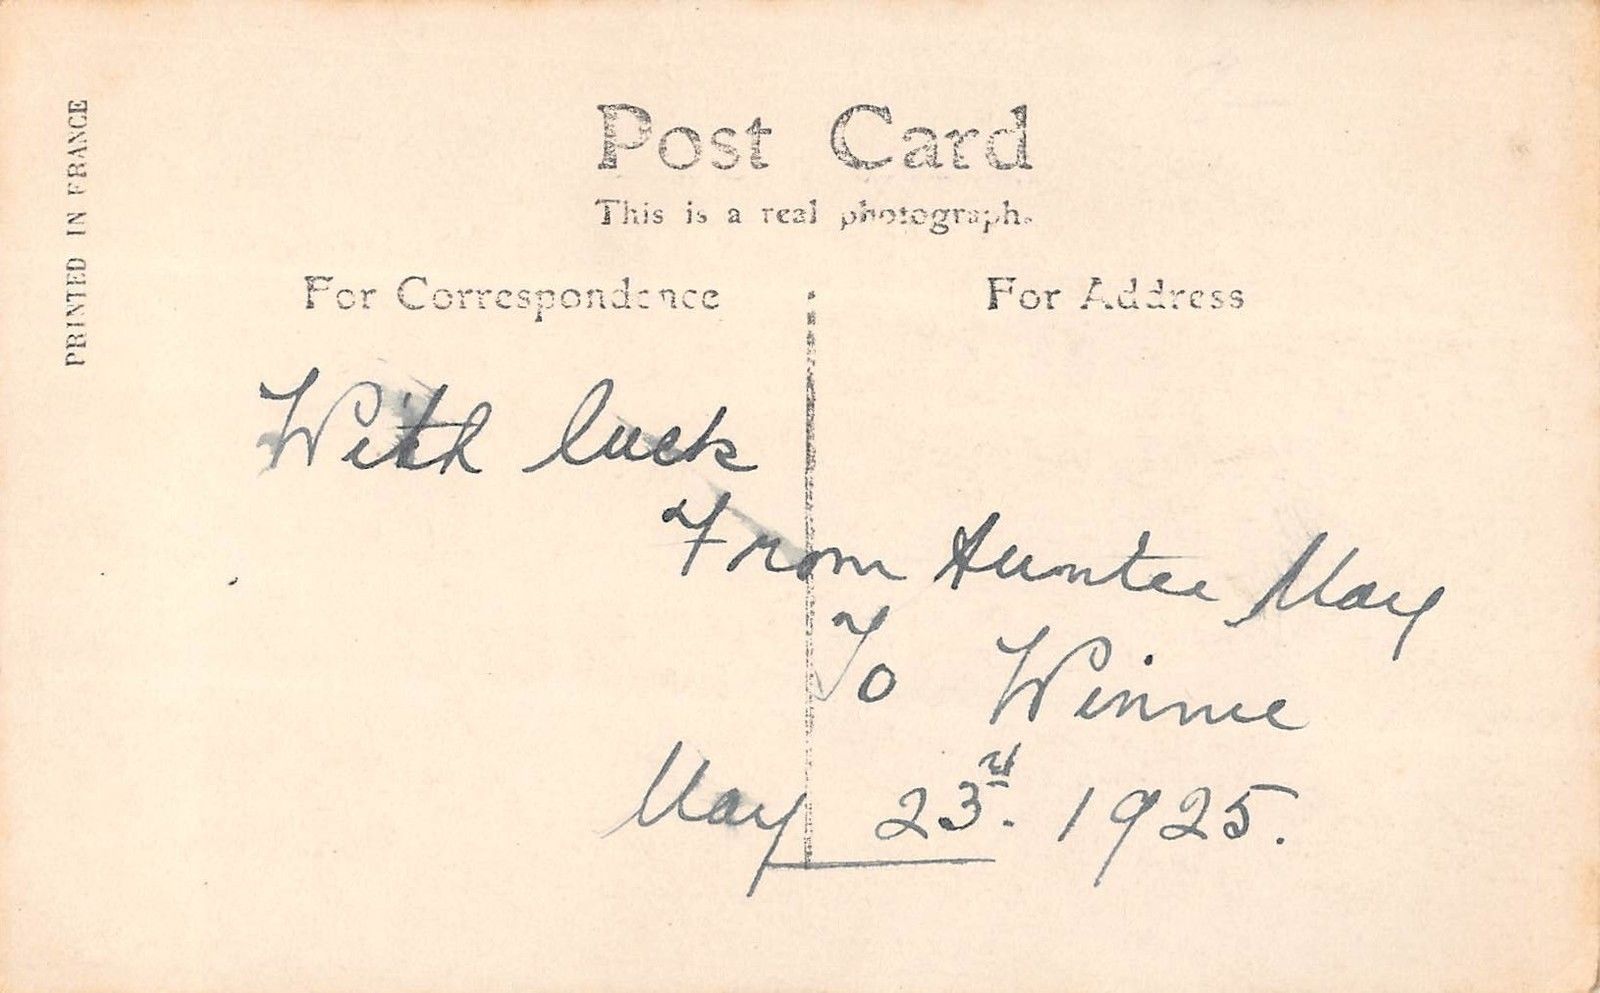 PRINTED IN FRANCE
Post Card
This is a real photograph.
For Correspondence
For Address
With luck
From Auntee May
To Winnie
May 23rd. 1925.